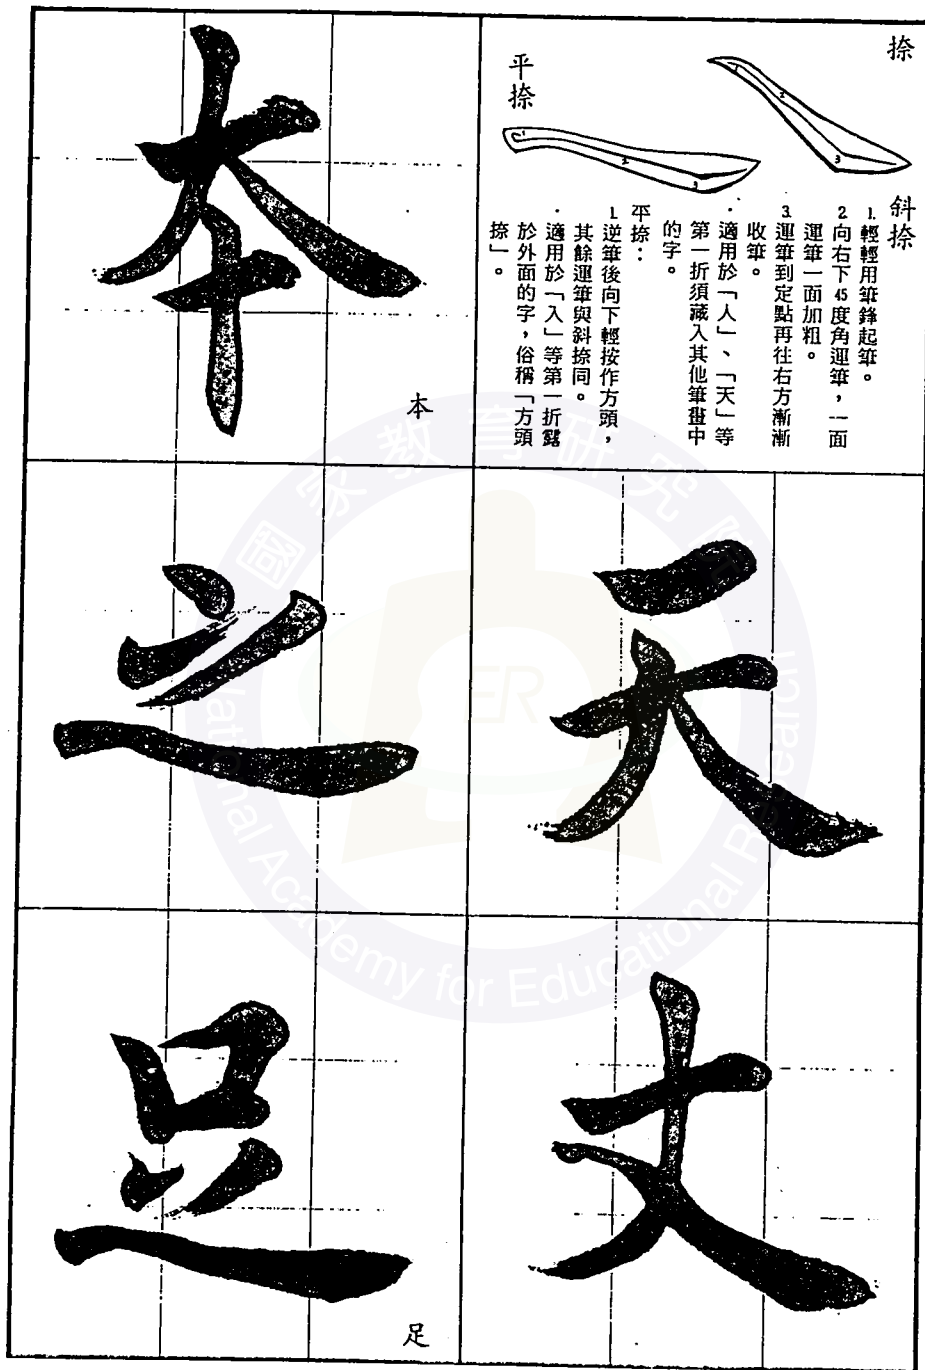 捺
斜捺
1. 輕輕用筆鋒起筆。
2. 向右下45度角運筆,一面
運筆一面加粗。
3. 運筆到定點再往右方漸漸
收筆。
．適用於「人」、「天」等
第一折須藏入其他筆畫中
的字。
平捺：
1. 逆筆後向下輕按作方頭，
其餘運筆與斜捺同。
．適用於「入」等第一折露
於外面的字，俗稱「方頭
捺」。
平捺
1 2 3
1 2 3
天
丈
本
本
之
足
足
國家教育研究院
National Academy for Educational Research
ER